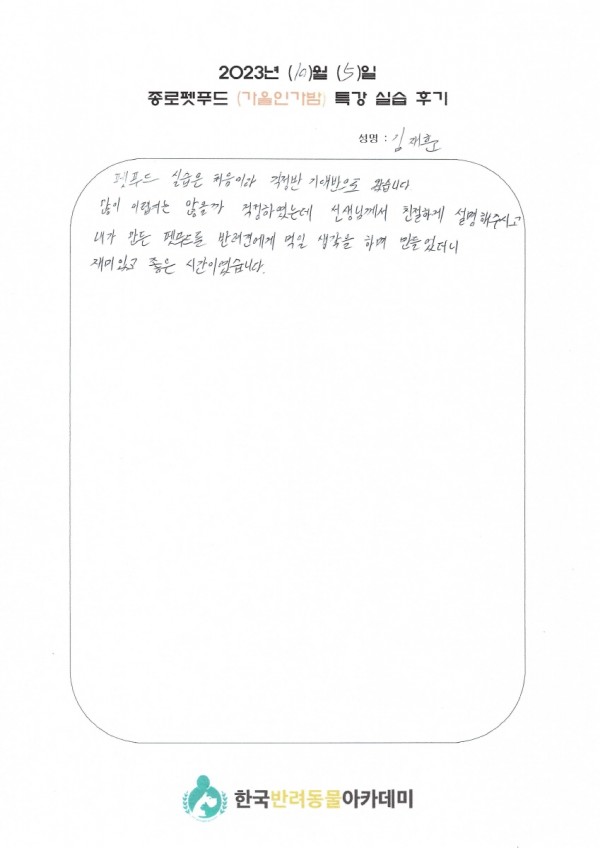 2023년 (10)월 (5)일
종로펫푸드 (가을인가밤) 특강 실습 후기
성명 : 김재훈
펫푸드 실습은 처음이라 걱정반 기대반으로 왔습니다
많이 어렵지는 않을까 걱정하였는데 선생님께서 친절하게 설명해주시고
내가 만든 펫푸드를 반려견에게 먹일 생각을 하며 만들었더니
재미있고 좋은 시간이였습니다.
한국반려동물아카데미